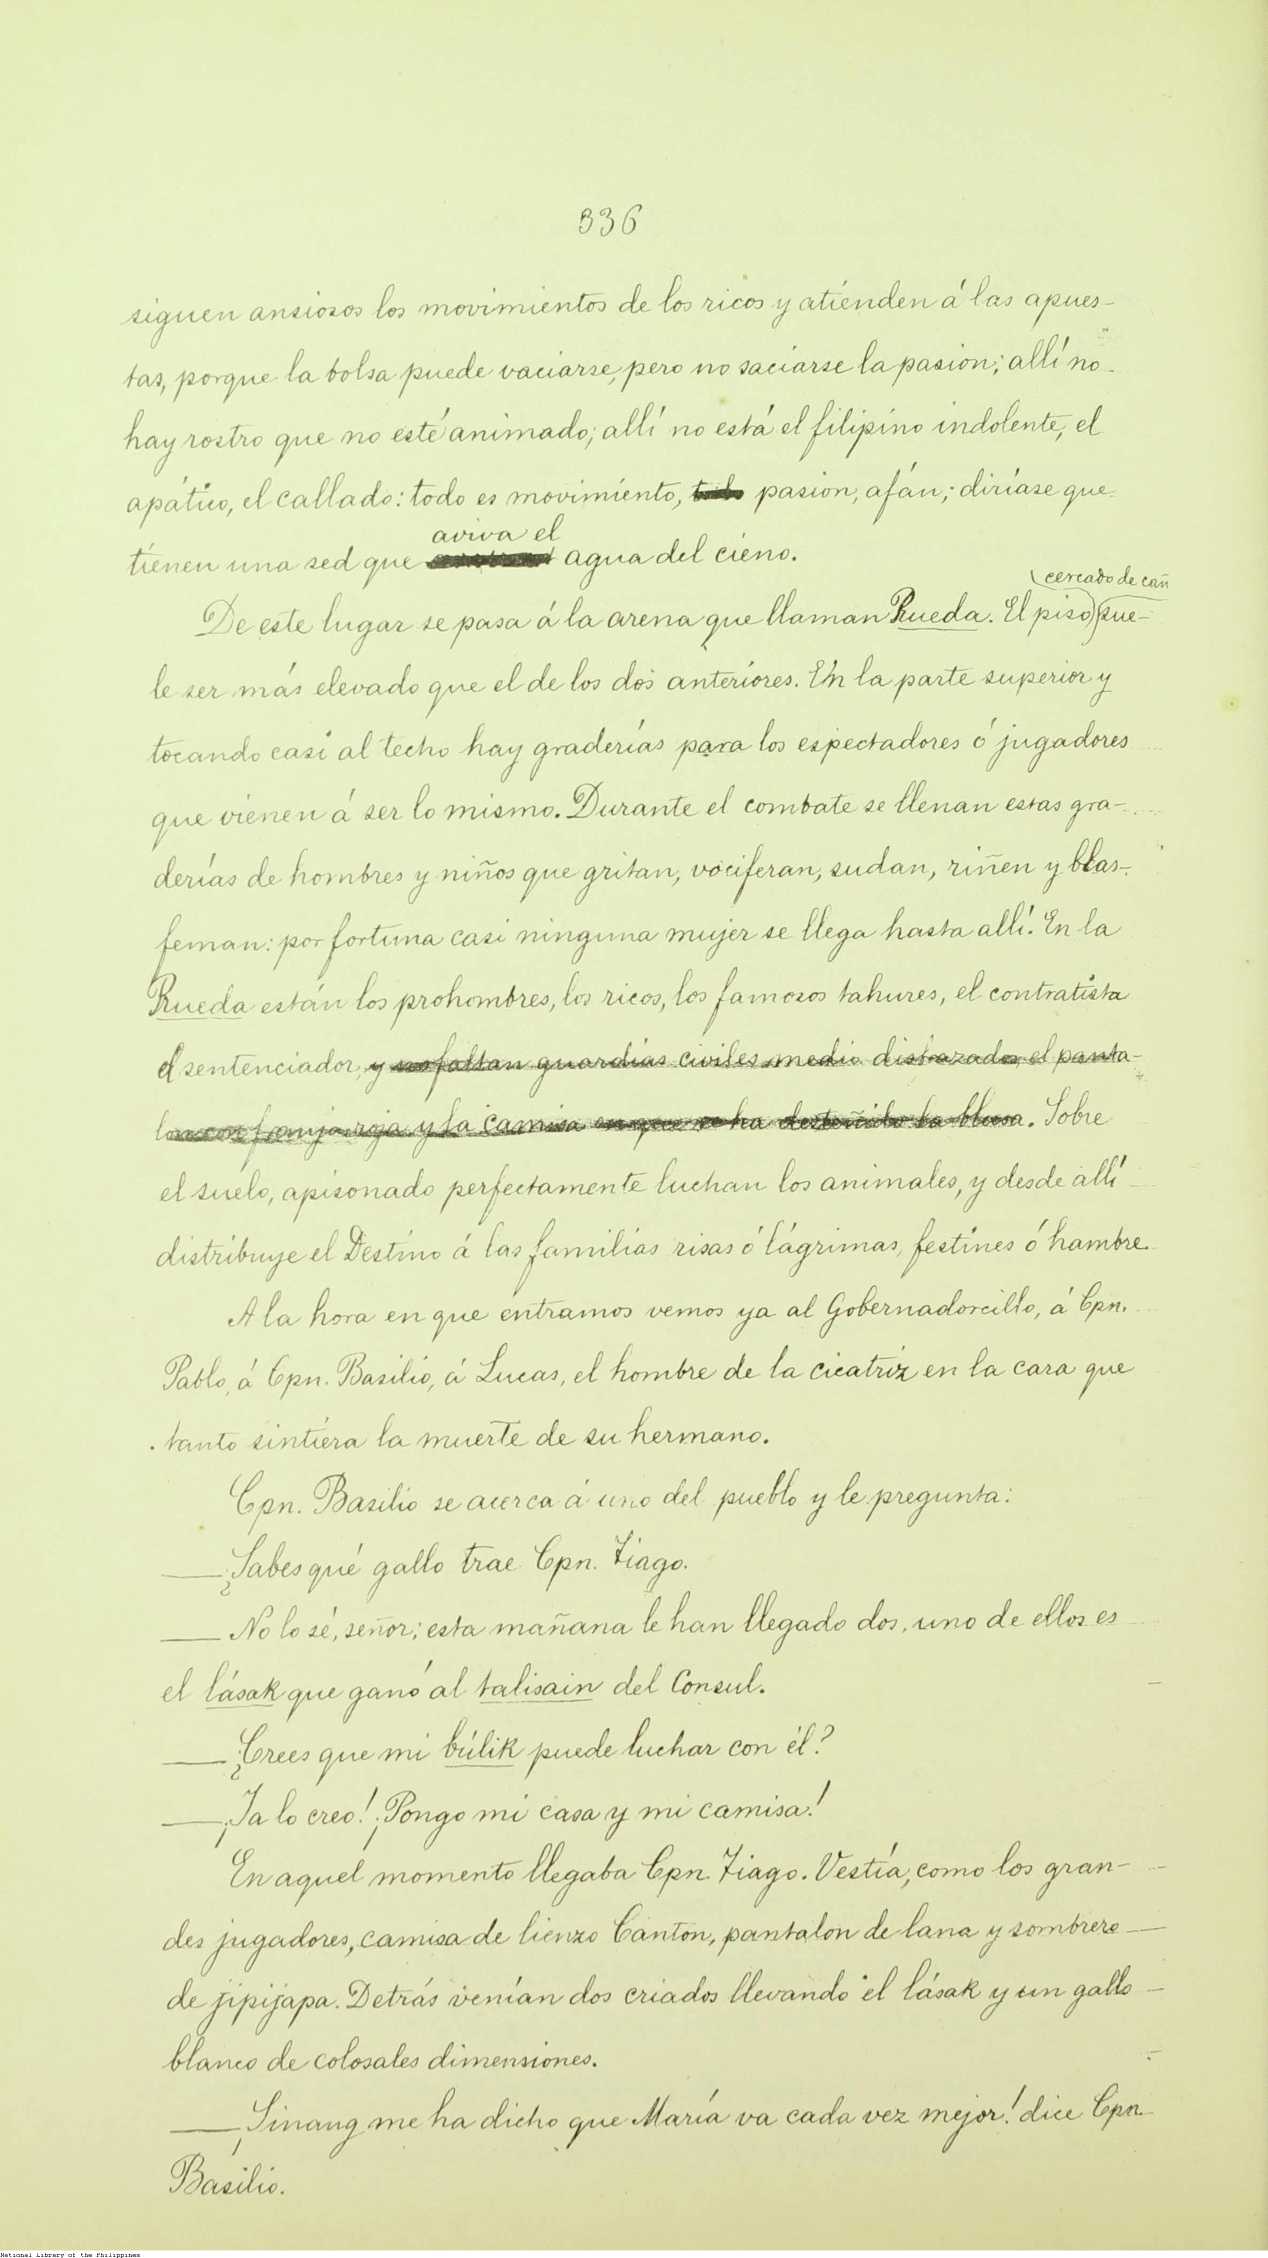 336
siguen ansiosos los movimientos de los ricos y atienden á las apues-
tas, porque la bolsa puede vaciarse, pero no saciarse la pasion; allí no
hay rostro que no esté animado; allí no está el filipino indolente, el
apático, el callado: todo es movimiento, todo pasion, afán; diríase que
aviva el
tienen una sed que agua del cieno.
cercado de cañ
De este lugar se pasa á la arena que llaman Rueda. El piso sue-
le ser más elevado que el de los dos anteriores. En la parte superior y
tocando casi al techo hay graderías para los espectadores ó jugadores
que vienen á ser lo mismo. Durante el combate se llenan estas gra-
derías de hombres y niños que gritan, vociferan, sudan, riñen y blas-
feman: por fortuna casi ninguna mujer se llega hasta allí. En la
Rueda están los prohombres, los ricos, los famosos tahures, el contratista
el sentenciador, y no faltan guardias civiles medio disfrazados, el panta-
lon con franja roja y la camisa en que se ha desteñido la blusa. Sobre
el suelo, apisonado perfectamente luchan los animales, y desde allí
distribuye el Destino á las familias risas ó lágrimas, festines ó hambre.
A la hora en que entramos vemos ya al Gobernadorcillo, á Cpn.
Pablo, á Cpn. Basilio, á Lucas, el hombre de la cicatriz en la cara que
tanto sintiera la muerte de su hermano.
Cpn. Basilio se acerca á uno del pueblo y le pregunta:
—¿Sabes qué gallo trae Cpn. Tiago.
— No lo sé, señor; esta mañana le han llegado dos, uno de ellos es
el lásak que ganó al talisain del Consul.
—¿Crees que mi búlik puede luchar con él?
—¡Ya lo creo! ¡Pongo mi casa y mi camisa!
En aquel momento llegaba Cpn. Tiago. Vestía, como los gran-
des jugadores, camisa de lienzo Canton, pantalon de lana y sombrero
de jipijapa. Detrás venían dos criados llevando el lásak y un gallo
blanco de colosales dimensiones.
—¡Sinang me ha dicho que María va cada vez mejor! dice Cpn
Basilio.
National Library of the Philippines